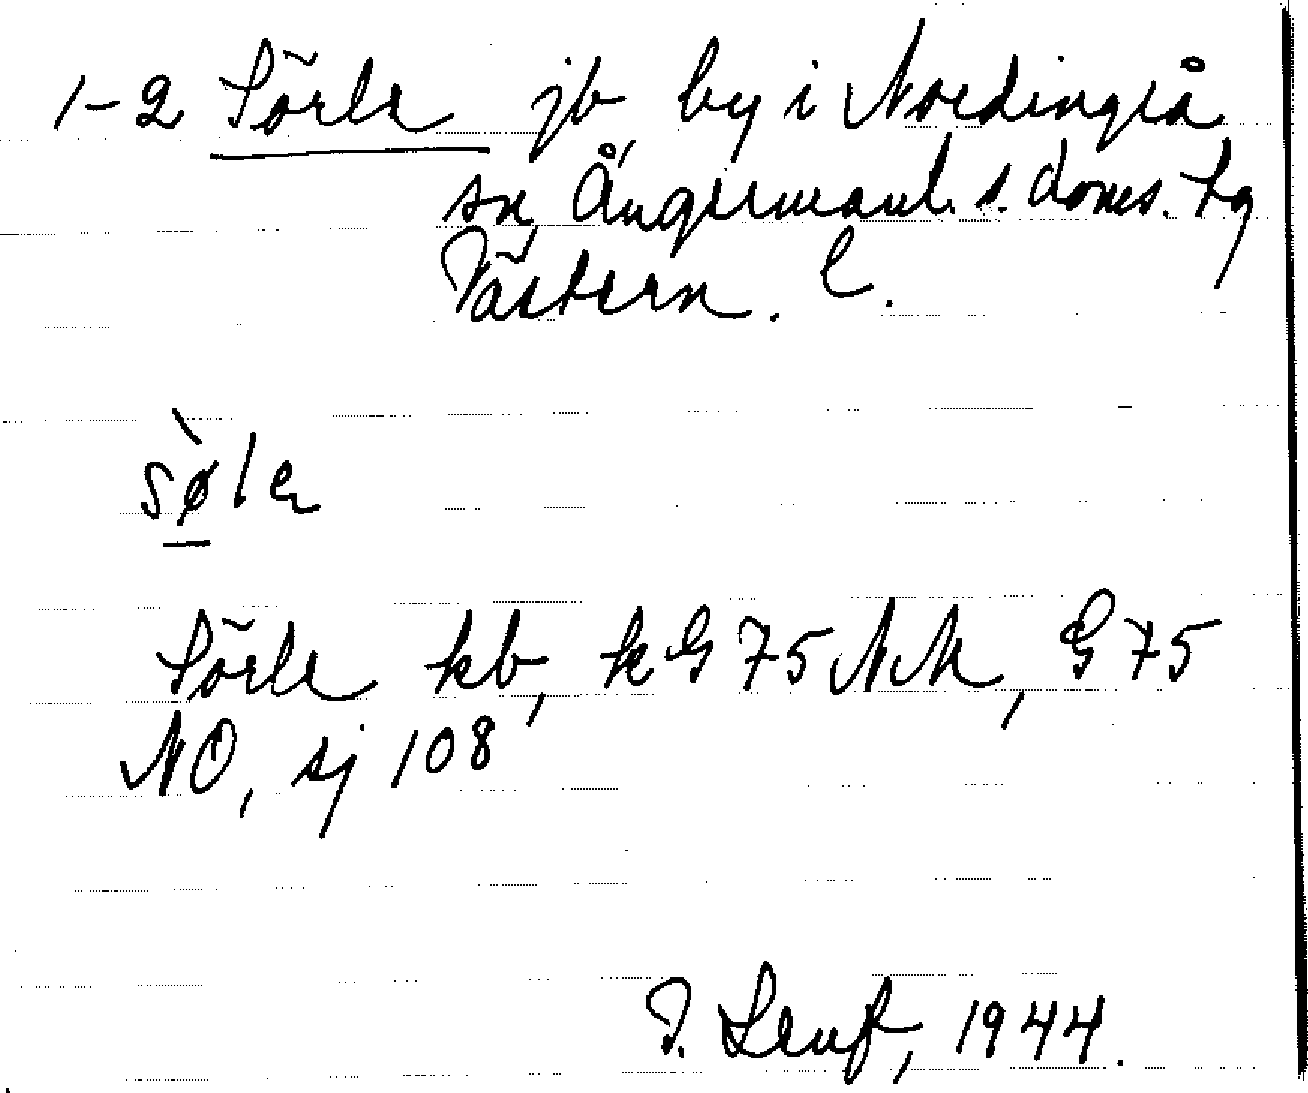 1-2 Sörle jb by i Nordingrå
sn, Ångermanl. s. doms. tg
Västern. l.
sø̀le
Sörle kb, k G 75 NM, G 75
NO, sj 108
Leuf, 1944.